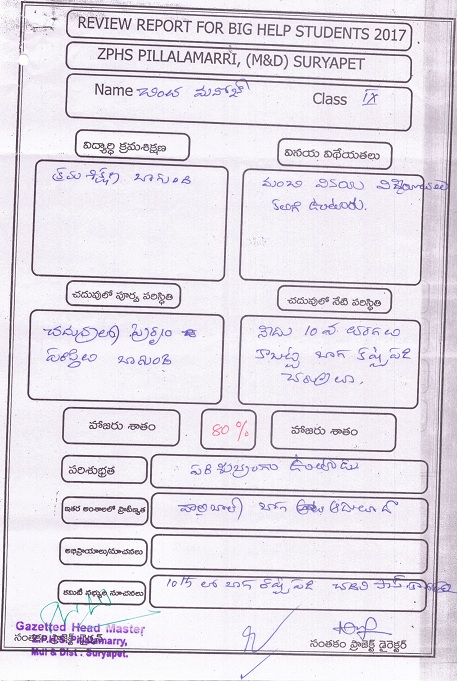 REVIEW REPORT FOR BIG HELP STUDENTS 2017
ZPHS PILLALAMARRI, (M&D) SURYAPET
Name మనోజ్ Class IX
విద్యార్థి క్రమశిక్షణ
వినయ విధేయతలు
బాగుంది
మంచి వినయ
కలిగి ఉంటాడు.
చదువులో పూర్వ పరిస్థితి
చదువులో నేటి పరిస్థితి
చదువులో పూర్వం
పరిస్థితి బాగుంది
నేడు 10 వ తరగతి
కాబట్టి బాగ కష్టపడి
చదవాలి.
హాజరు శాతం
80 %
హాజరు శాతం
పరిశుభ్రత
పరిశుభ్రంగా ఉంటాడు
ఇతర అంశాలలో ప్రావీణ్యత
వాలీబాల్ బాగ ఆడుతాడు
అభిప్రాయాలు/సూచనలు
కమిటీ సభ్యుల సూచనలు
10 లో బాగ కష్టపడి
Gazetted Head Master
Z.P.H.S. Pillalamarry,
Mul & Dist : Suryapet.
సంతకం ప్రాజెక్ట్
సంతకం ప్రాజెక్ట్ డైరెక్టర్